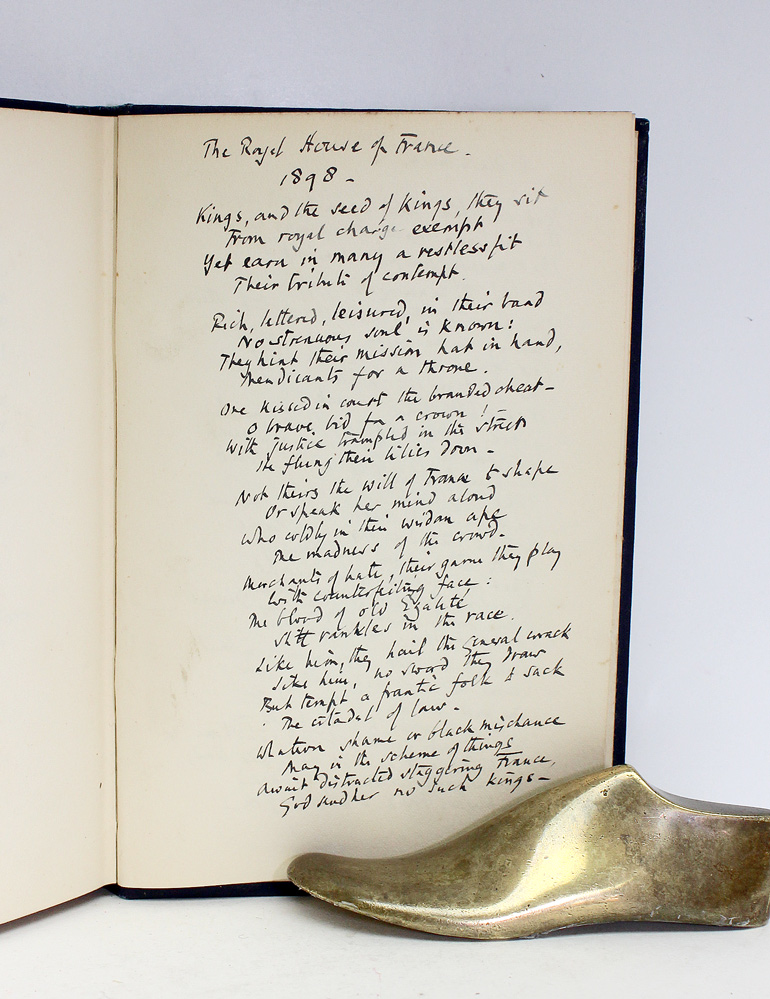 The Royal House of France.
1898 -
Kings, and the seed of Kings, they sit
From royal charge exempt
Yet earn in many a restless fit
Their tribute of contempt.
Rich, lettered, leisured, in their band
No strenuous soul is known:
They hint their mission hat in hand,
Mendicants for a throne.
One kissed in court the branded cheat -
O brave bid for a crown!
With justice trampled in the street
He flung their lilies down -
Not theirs the will of France to shape
Or speak her mind aloud
Who coldly in their wisdom ape
The madness of the crowd.
Merchants of hate, their game they play
With counterfeiting face:
The blood of old Egalité
Still rankles in the race.
Like him, they hail the General wrack
Like him, no sword they draw
But tempt a frantic folk to sack
The citadel of law -
Whatever shame or black mischance
May in the scheme of things
Await distracted staggering France,
God send her no such kings -